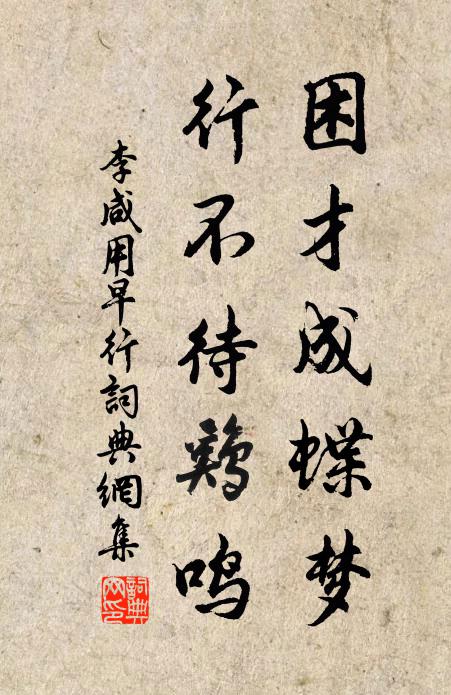 困才成蝶梦
行不待鷄鸣
李咸用早行詞典網集
詞典网印